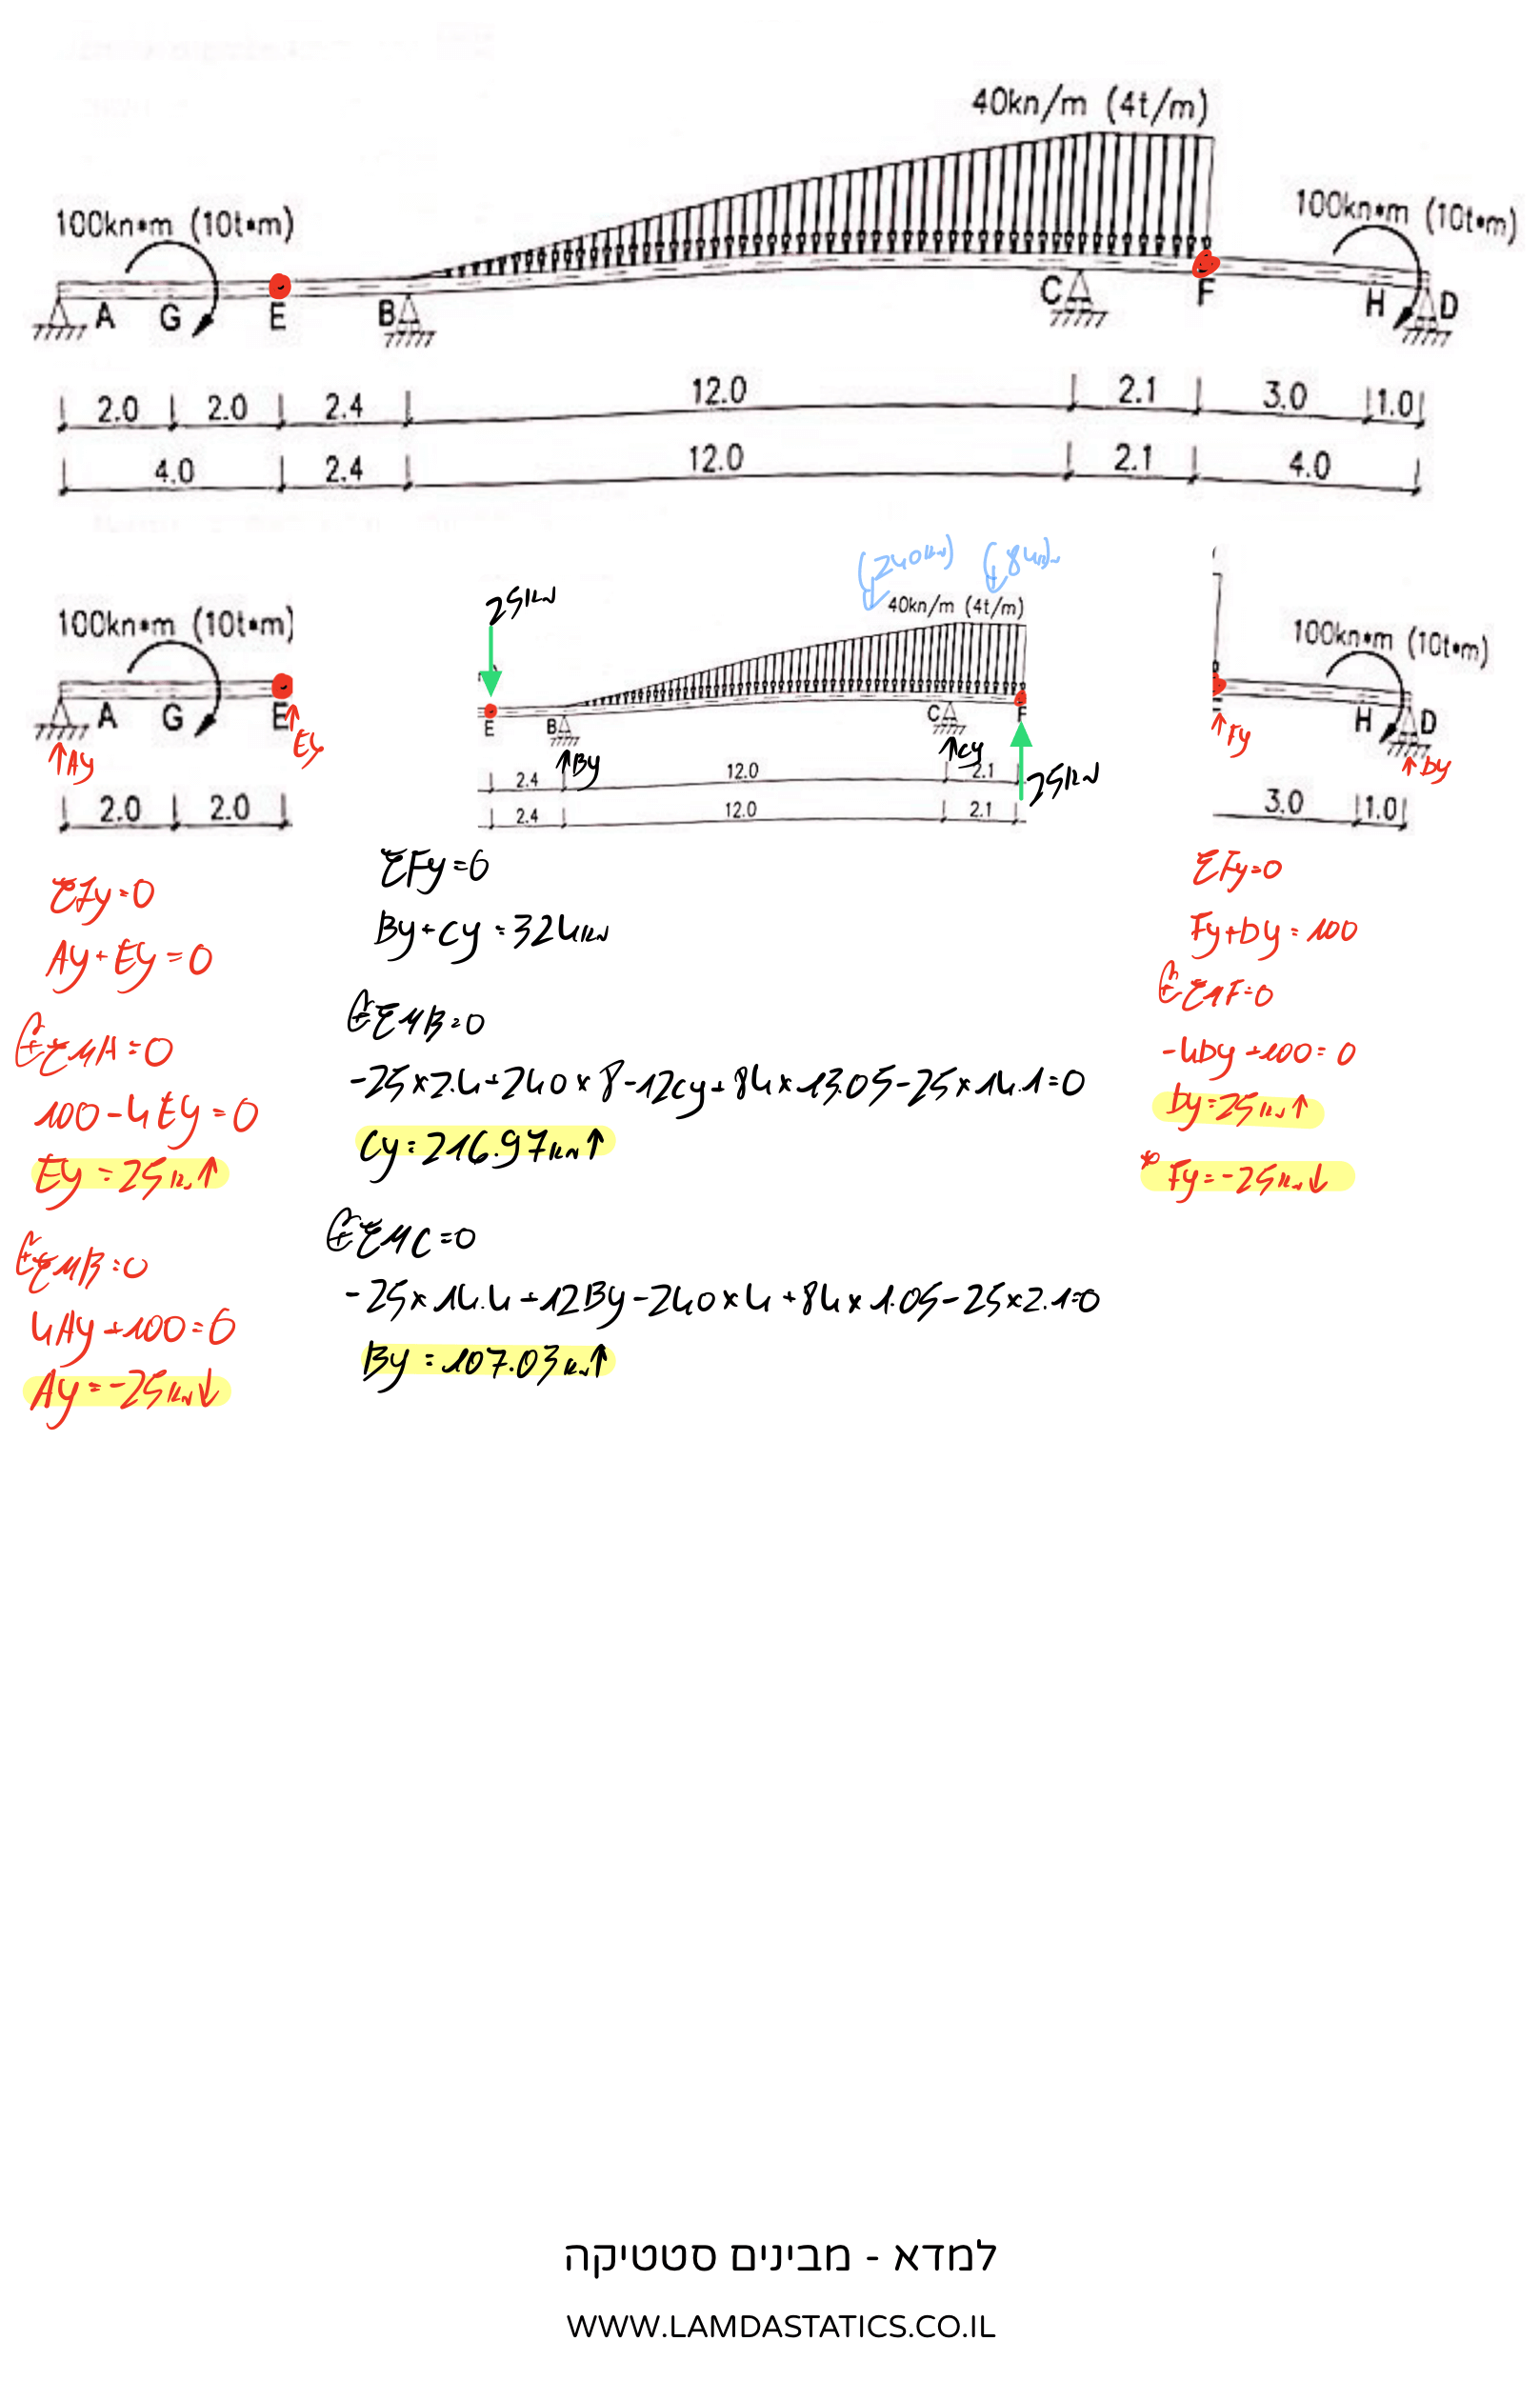 40kn/m (4t/m)
100kn•m (10t•m)
100kn•m (10t•m)
A G E B C F H D
2.0 2.0 2.4 12.0 2.1 3.0 1.0
4.0 2.4 12.0 2.1 4.0
(240kN) (84kN)
25kN
40kn/m (4t/m)
100kn•m (10t•m)
100kn•m (10t•m)
A G E
E B C F
H D
Ay Ey
By Cy 25kN
Fy Dy
2.0 2.0
2.4 12.0 2.1
2.4 12.0 2.1
3.0 1.0
ΣFy=0
Ay+Ey=0
+ΣMA=0
100-4Ey=0
Ey=25kN↑
+ΣMB=0
4Ay+100=0
Ay=-25kN↓
ΣFy=0
By+Cy=324kN
+ΣMB=0
-25×2.4+240×8-12Cy+84×13.05-25×14.1=0
Cy=216.97kN↑
+ΣMC=0
-25×14.4+12By-240×4+84×1.05-25×2.1=0
By=107.03kN↑
ΣFy=0
Fy+Dy=100
+ΣMF=0
-4Dy+100=0
Dy=25kN↑
Fy=-25kN↓
למדא - מבינים סטטיקה
WWW.LAMDASTATICS.CO.IL